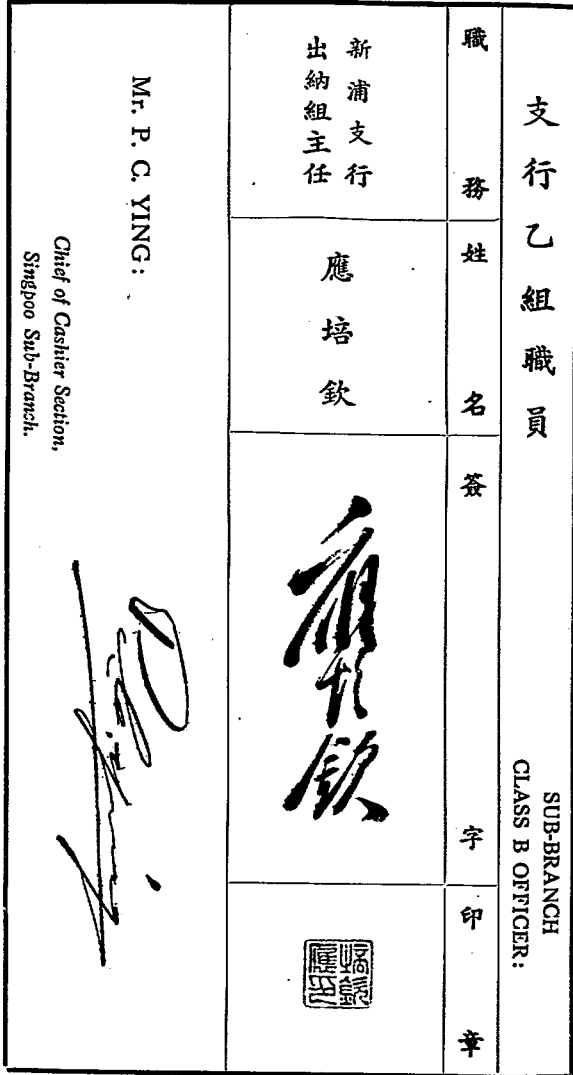 支行乙組職員
SUB-BRANCH
CLASS B OFFICER:
職務
姓名
簽字
印章
新浦支行
出納組主任
應培欽
應培欽
Mr. P. C. YING:
Chief of Cashier Section,
Singpoo Sub-Branch.